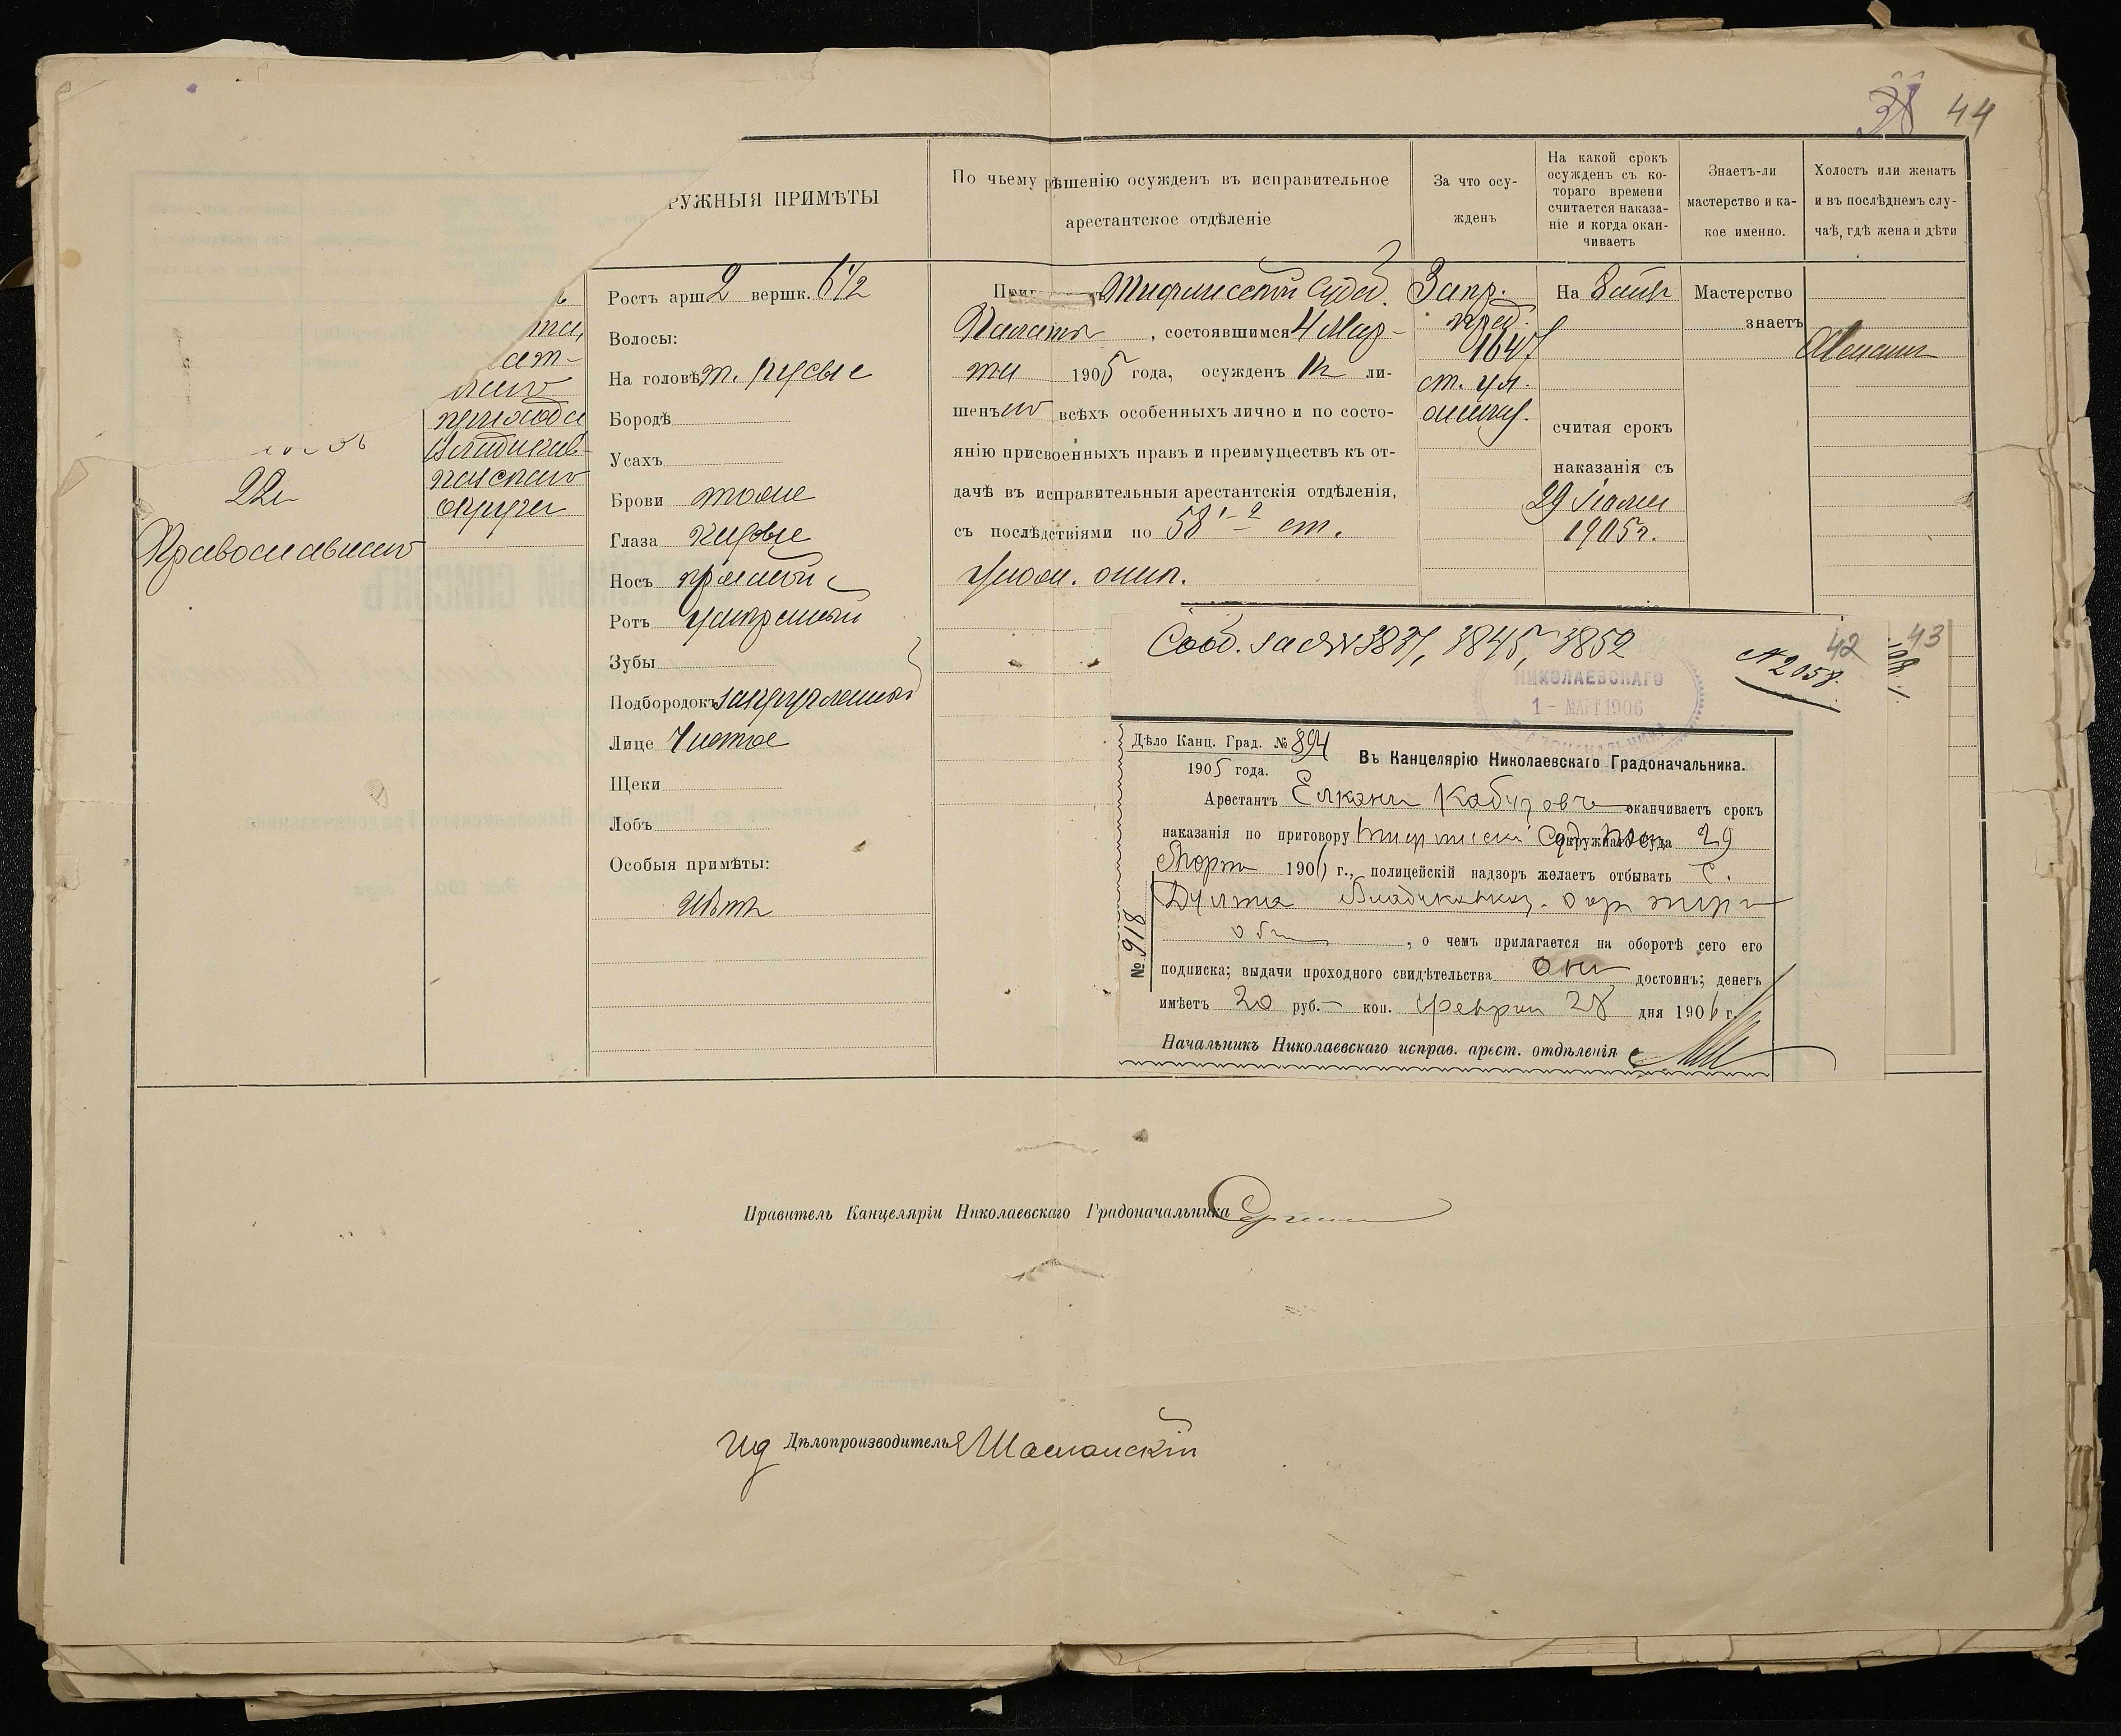 38 44
РУЖНЫЯ ПРИМѢТЫ
По чьему рѣшенію осужденъ въ исправительное
арестантское отдѣленіе
За что осу-
жденъ
На какой срокъ
осужденъ съ ко-
тораго времени
считается наказа-
ніе и когда окан-
чиваетъ
Знаетъ-ли
мастерство и ка-
кое именно.
Холостъ или женатъ
и въ послѣднемъ слу-
чаѣ, гдѣ жена и дѣти
22
Православнаго
прихода
Владикав-
казскаго
округа
Ростъ арш. 2 вершк. 6 1/2
Волосы:
На головѣ т. русые
Бородѣ
Усахъ
Брови тоже
Глаза карые
Носъ прямой
Ротъ умѣренный
Зубы
Подбородокъ закругленный
Лице Чистое
Щеки
Лобъ
Особыя примѣты:
Нѣтъ
Тифлисской Судеб.
Палаты, состоявшимся 4 Мар-
та 1905 года, осужденъ къ ли-
шенію всѣхъ особенныхъ лично и по состо-
янію присвоенныхъ правъ и преимуществъ къ от-
дачѣ въ исправительныя арестантскія отдѣленія,
съ послѣдствіями по 58 1-2 ст.
Улож. о нак.
1647
ст. ул.
о наказ.
На
считая срокъ
наказанія съ
29
1905 г.
Мастерство
знаетъ
Женатъ
Сооб. за №№ 3837, 3845, 3852
№ 2058.
42 43
НИКОЛАЕВСКАГО
1 - МАРТ 1906
ГРАДОНАЧАЛЬНИКА
Дѣло Канц. Град. № 894
1905 года.
Въ Канцелярію Николаевскаго Градоначальника.
Арестантъ Елканъ Кабузовъ оканчиваетъ срокъ
наказанія по приговору Тифлисск. Суд. Пал. Окружнаго Суда 29
Марта 1906 г., полицейскій надзоръ желаетъ отбывать С.
Владикавказ. окр. Терс.
обл., о чемъ прилагается на оборотѣ сего его
подписка; выдачи проходного свидѣтельства онъ достоинъ; денегъ
имѣетъ 20 руб. — коп. Февраля 28 дня 1906 г.
№ 918
Начальникъ Николаевскаго исправ. арест. отдѣленія
Правитель Канцеляріи Николаевскаго Градоначальника
Ид Дѣлопроизводитель